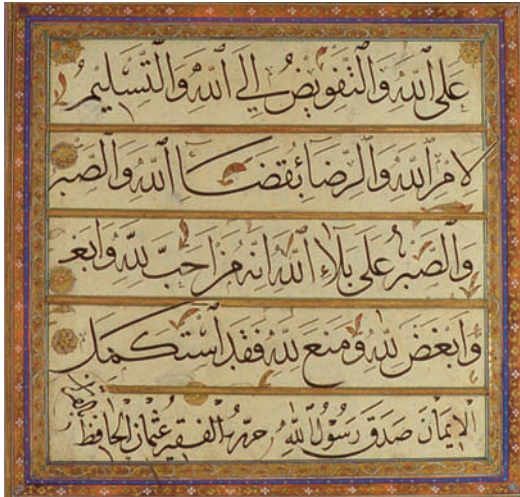 على الله والتفويض الى الله والتسليم
لامر الله والرضا بقضاء الله والصبر
والصبر على بلاء الله انه من احب لله وابغ
وابغض لله ومنع لله فقد استكمل
الايمان صدق رسول الله حرره الفقير عثمان الحافظ